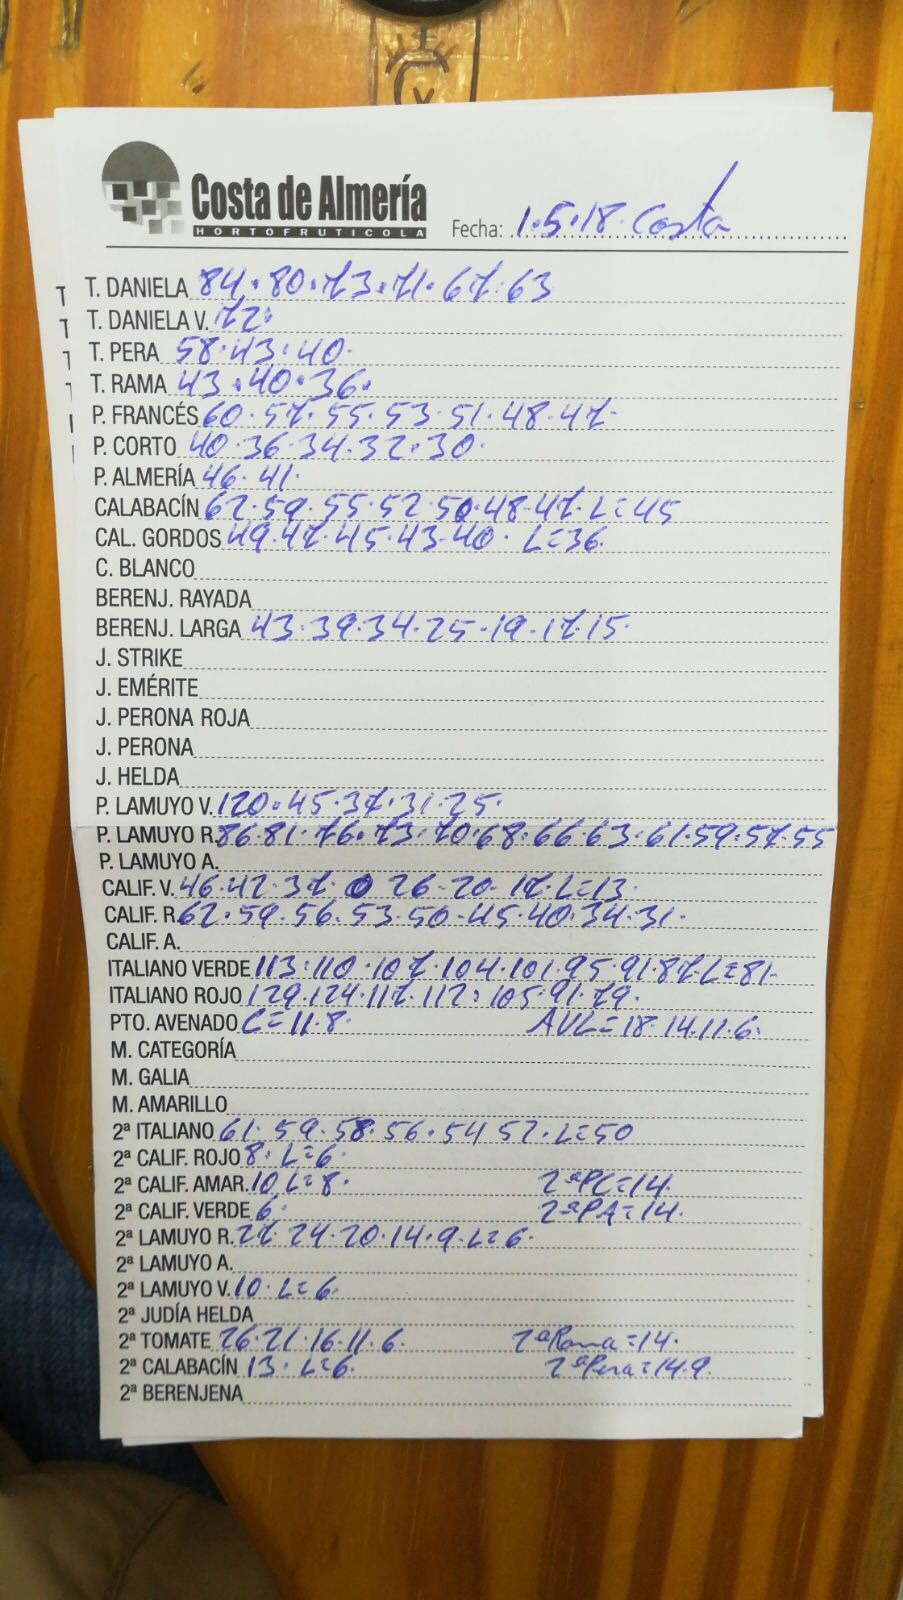 Costa de Almería
HORTOFRUTICOLA
Fecha: 1.5.18. Costa
T. DANIELA 84.80.73.71.67.63
T. DANIELA V. 72.
T. PERA 58.43.40.
T. RAMA 43.40.36.
P. FRANCÉS 60.57.55.53.51.48.47.
P. CORTO 40.36.34.32.30.
P. ALMERÍA 46.41.
CALABACÍN 62.59.55.52.50.48.47.L=45
CAL. GORDOS 49.47.45.43.40. L=36.
C. BLANCO
BERENJ. RAYADA
BERENJ. LARGA 43.39.34.25.19.17.15.
J. STRIKE
J. EMÉRITE
J. PERONA ROJA
J. PERONA
J. HELDA
P. LAMUYO V. 120.45.37.31.25.
P. LAMUYO R. 86.81.76.73.70.68.66.63.61.59.57.55
P. LAMUYO A.
CALIF. V. 46.42.37. 26.20.17.L=13.
CALIF. R. 62.59.56.53.50.45.40.34.31.
CALIF. A.
ITALIANO VERDE 113.110.107.104.101.95.91.87.L=81.
ITALIANO ROJO 129.124.117.112.105.91.79.
PTO. AVENADO C=11.8. AVL=18.14.11.6.
M. CATEGORÍA
M. GALIA
M. AMARILLO
2ª ITALIANO 61.59.58.56.54 52.L=50
2ª CALIF. ROJO 8. L=6.
2ª CALIF. AMAR. 10 L=8. 2ªPC=14.
2ª CALIF. VERDE 6. 2ªPA=14.
2ª LAMUYO R. 27.24.20.14.9.L=6.
2ª LAMUYO A.
2ª LAMUYO V. 10. L=6.
2ª JUDÍA HELDA
2ª TOMATE 26.21.16.11.6. 2ªRama=14.
2ª CALABACÍN 13. L=6. 2ªPera=14.9.
2ª BERENJENA